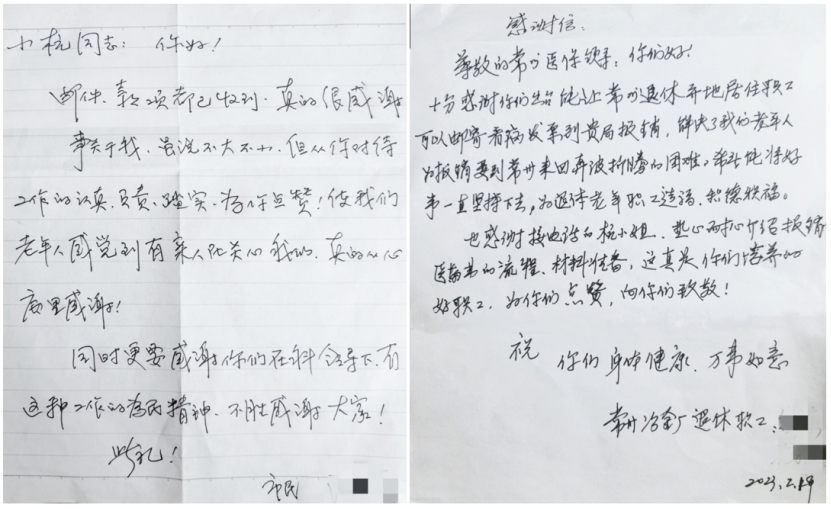 小杭同志：你好！
邮件、款项都已收到，真的很感谢
事关于我，虽说不大不小，但从你对待
工作的认真、负责、踏实，为你点赞！使我们
老年人感觉到有亲人在关心我们，真的从心
底里感谢！
同时更要感谢你们在领导下，有
这种工作的为民精神，不胜感谢大家！
此礼！
市民
感谢信：
尊敬的常州医保领导：你们好！
十分感谢你们出台能让常州退休异地居住职工
可以邮寄看病发票到贵局报销，解决了我们老年人
为报销要到常州来回奔波折腾的困难。希望能将好
事一直坚持下去，为退休老年职工造福、积德积福。
也感谢接电话的杭小姐，热心耐心介绍报销
医药书的流程、材料准备，这真是你们培养的
好职工，为你们点赞，向你们致敬！
祝
你们 身体健康、万事如意
常州冶金厂退休职工：
2023.2.19